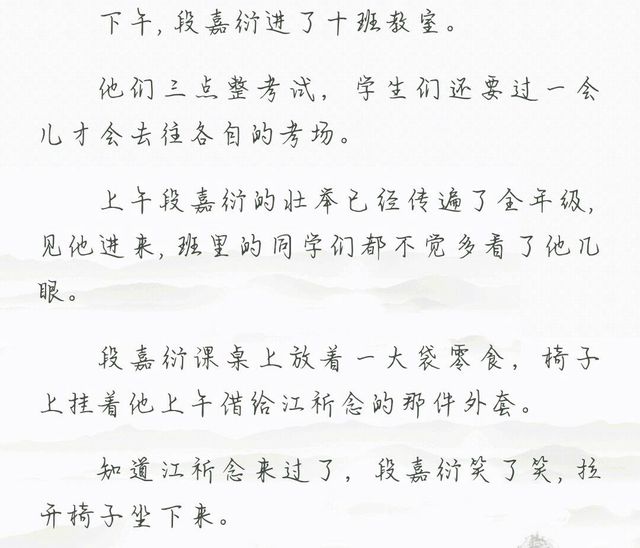 下午,段嘉衍进了十班教室。
他们三点整考试，学生们还要过一会
儿才会去往各自的考场。
上午段嘉衍的壮举已经传遍了全年级,
见他进来,班里的同学们都不觉多看了他几
眼。
段嘉衍课桌上放着一大袋零食，椅子
上挂着他上午借给江祈念的那件外套。
知道江祈念来过了，段嘉衍笑了笑,拉
开椅子坐下来。